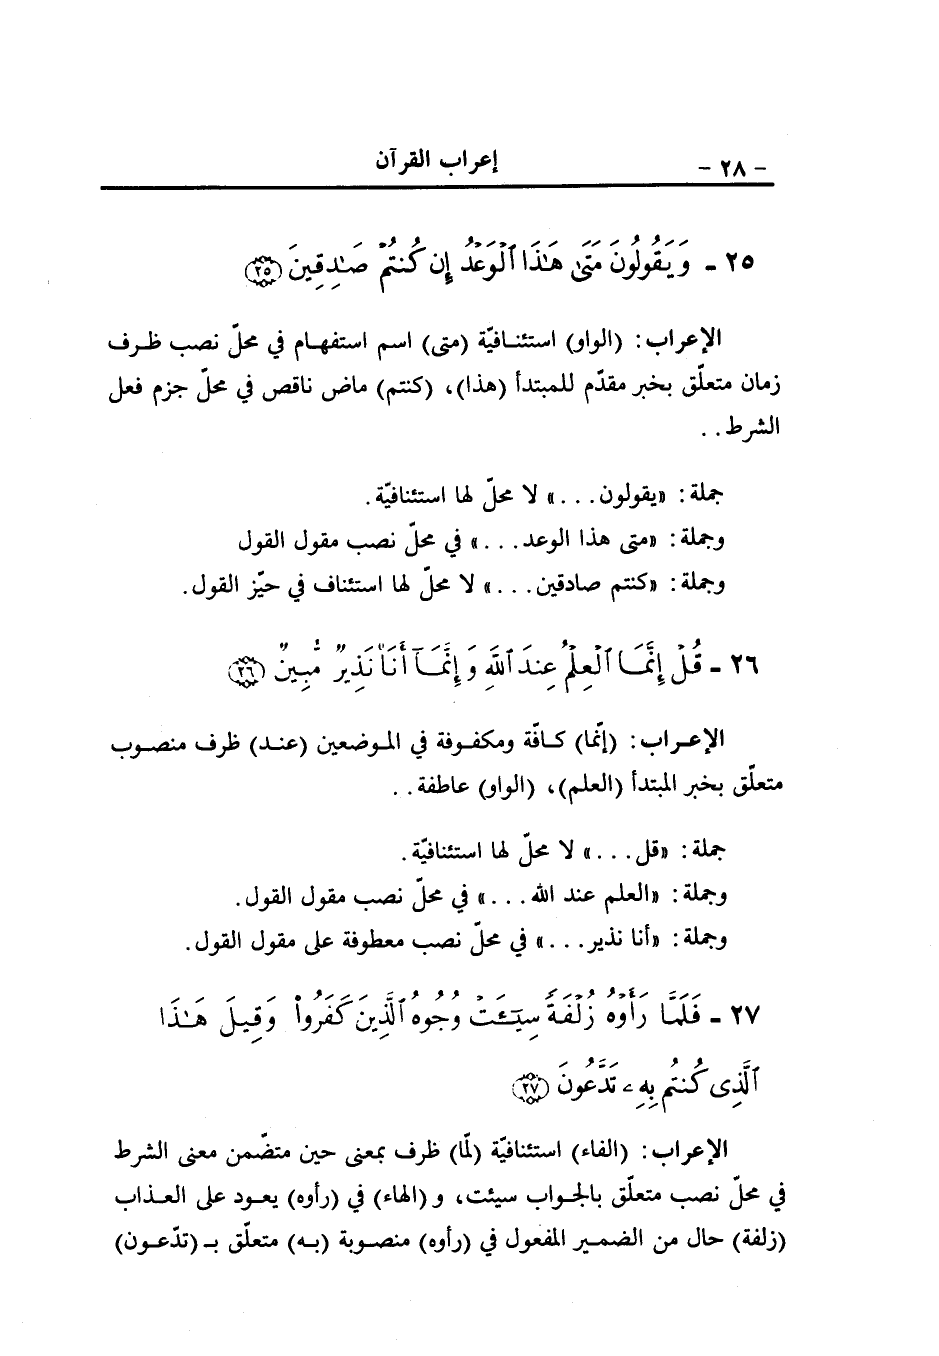 - ٢٨ - إعراب القرآن
٢٥ - وَيَقُولُونَ مَتَىٰ هَـٰذَا ٱلْوَعْدُ إِن كُنتُمْ صَـٰدِقِينَ ﴿٢٥﴾
الإعراب: (الواو) استئنافيّة (متى) اسم استفهام في محلّ نصب ظرف
زمان متعلّق بخبر مقدّم للمبتدأ (هذا)، (كنتم) ماض ناقص في محلّ جزم فعل
الشرط . .
جملة: «يقولون. . .» لا محلّ لها استئنافيّة.
وجملة: «متى هذا الوعد. . .» في محلّ نصب مقول القول
وجملة: «كنتم صادقين. . .» لا محلّ لها استئناف في حيّز القول.
٢٦ - قُلْ إِنَّمَا ٱلْعِلْمُ عِندَ ٱللَّهِ وَإِنَّمَآ أَنَا۠ نَذِيرٌ مُّبِينٌ ﴿٢٦﴾
الإعراب: (إنّما) كافّة ومكفوفة في الموضعين (عند) ظرف منصوب
متعلّق بخبر المبتدأ (العلم)، (الواو) عاطفة . .
جملة: «قل. . .» لا محلّ لها استئنافيّة.
وجملة: «العلم عند الله. . .» في محلّ نصب مقول القول.
وجملة: «أنا نذير. . .» في محلّ نصب معطوفة على مقول القول.
٢٧ - فَلَمَّا رَأَوْهُ زُلْفَةً سِيٓـَٔتْ وُجُوهُ ٱلَّذِينَ كَفَرُوا۟ وَقِيلَ هَـٰذَا
ٱلَّذِى كُنتُم بِهِۦ تَدَّعُونَ ﴿٢٧﴾
الإعراب: (الفاء) استئنافيّة (لمّا) ظرف بمعنى حين متضّمن معنى الشرط
في محلّ نصب متعلّق بالجواب سيئت، و(الهاء) في (رأوه) يعود على العذاب
(زلفة) حال من الضمير المفعول في (رأوه) منصوبة (به) متعلّق بـ (تدّعون)